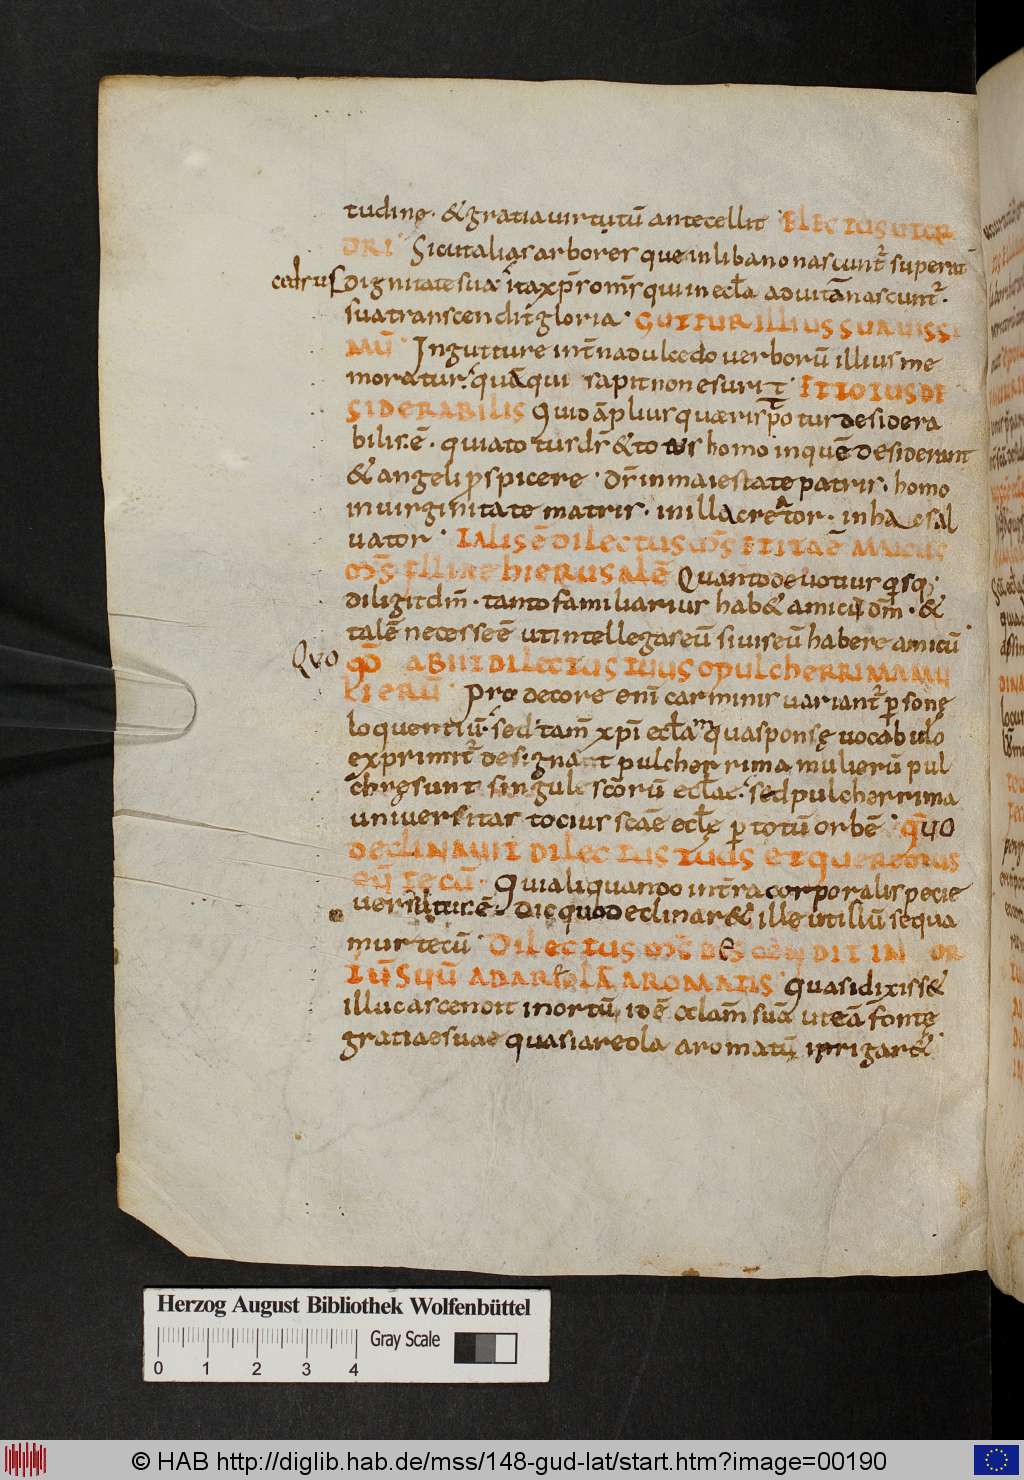 tudinę · & gratia uirtutū antecellit · ELECTUS UT CE
DRI · Sicut alias arbores que in libano nascunt̄ superat̄
cedrus dignitate sua · ita xp̄s om̄s qui in eccl̄a ad uitā nascunt̄ ·
sua transcendit gloria · GUTTUR ILLIUS SUAUISSI
MŪ · In gutture int̄na dulcedo uerborū illius me
moratur · quā qui sapit non esurit · ET TOTUS DE
SIDERABILIS Quid āplius quæris potur desidera
bilis ē · quia totus ds̄ & totus homo inquē desiderant
& angeli p̄spicere · ds̄ in maiestate patris · homo
in uirginitate matris · in illa creator · in hac sal
uator · TALIS Ē DILECTUS M̄S ET ITA Ē AMICUS
M̄S FILIAE HIERUSALĒ Quanto deuotius q̄sq;
diligit dm̄ · tanto familiarius hab& amicū dm̄ · &
talē necesse ē ut intellegas eū si uis eū habere amicū ·
Quo QO ABIIT DILECTUS TUUS O PULCHERRIMA MU
LIERŪ · Pro decore eni carminis uariant̄ psonę
loquentiū · sed tam̄ xpi eccl̄am quasponsę uocabulo
exprimit̄ designat pulcherrima mulierū pul
chręsunt singulę scōrū eccl̄ae · sed pulcherrima
uniuersitas tocius scāe eccl̄ę p totū orbē · quo
DECLINAUIT DILECTUS TUUS ET QUEREMUS
EŪ TECŪ · Quia aliquando int̄ra corporali specie
uersatur ē · dic quo declinar& ille ut illū sequa
mur tecū · DILECTUS M̄S DESCENDIT IN OR
TŪ SUŪ AD AREOLĀ AROMATIS · Quasi dixiss&
illuc ascendit in ortū id ē eccl̄am suā ut eā fontę
gratiae suae quasi areola aromatū irrigar& ·
Herzog August Bibliothek Wolfenbüttel
Gray Scale
0 1 2 3 4
© HAB http://diglib.hab.de/mss/148-gud-lat/start.htm?image=00190